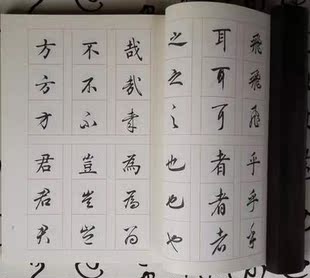 飛飛飛乎乎乎
耳耳耳者者者
之之之也也也
哉哉哉為為為
不不不豈豈豈
方方方君君君